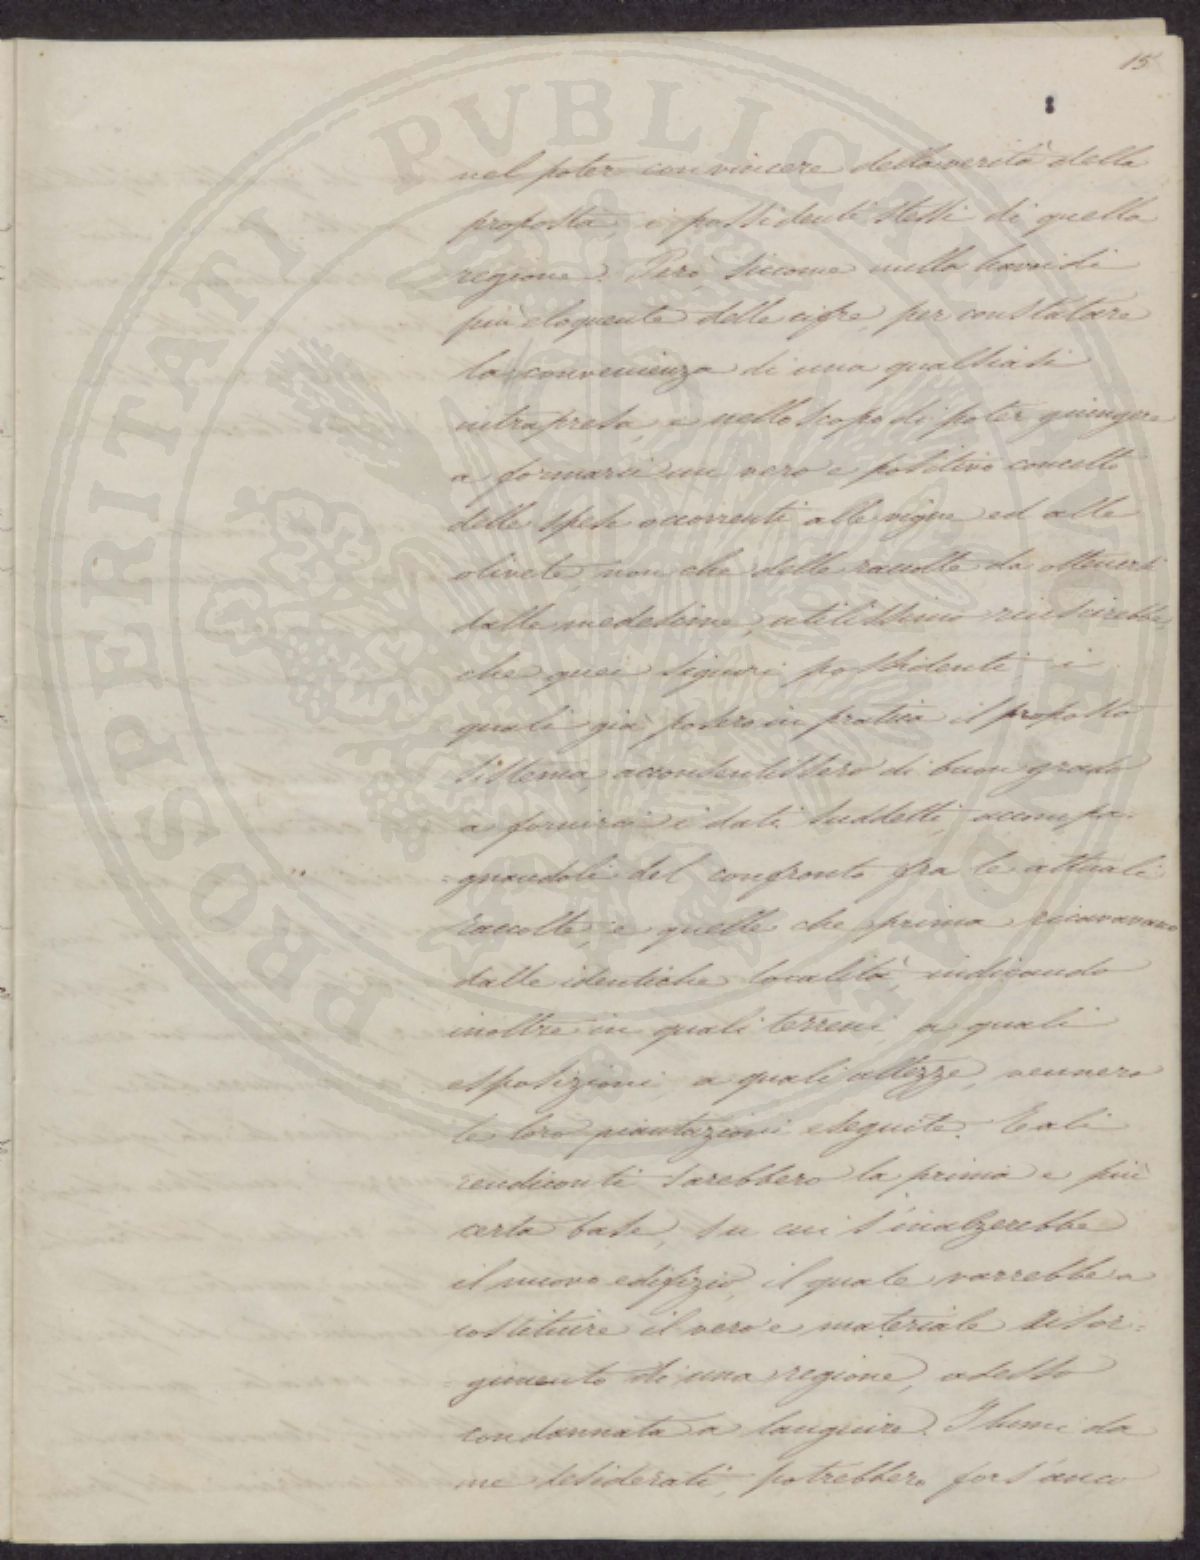 15
nel poter convincere della verità della
proposta, i possidenti stessi di quella
regione. Però, siccome nulla havvi di
più eloquente delle cifre, per constatare
la convenienza di una qualsiasi
intrapresa, e nello scopo di poter giungere
a formarsi un vero e positivo concetto
delle spese occorrenti alle vigne ed alle
olivete, non che delle raccolte da ottenersi
dalle medesime, utilissimo riuscirebbe,
che quei signori possidenti i
quali già posero in pratica il proposto
sistema, acconsentissero di buon grado
a fornirci i dati suddetti, accompa=
=gnandoli del confronto fra le attuali
raccolte, e quelle che prima ricavavano
dalle identiche località, indicando
inoltre in quali terreni, a quali
esposizioni, a quali altezze, vennero
le loro piantazioni eseguite. Tali
rendiconti sarebbero la prima e più
certa base, su cui s'inalzerebbe
il nuovo edifizio, il quale varrebbe a
costituire il vero e materiale risor=
=gimento di una regione, adesso
condannata a languire. I lumi da
me desiderati, potrebbero fors'anco
PROSPERITATI PVBLICAE AVGENDAE